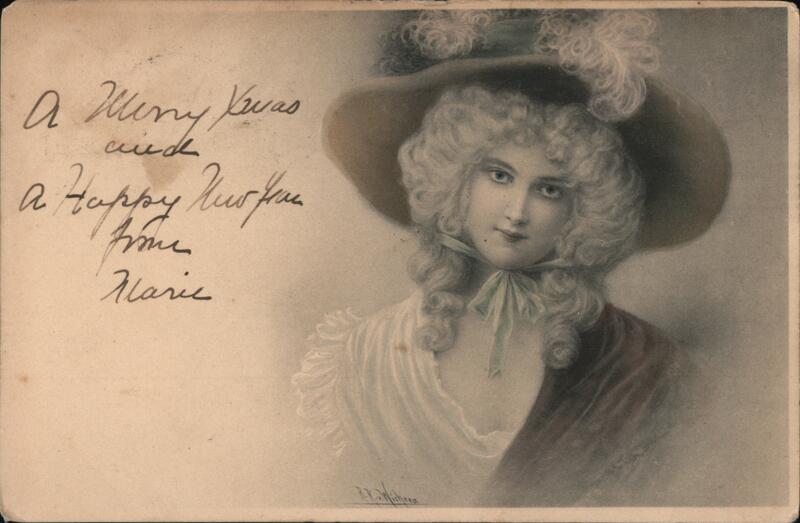 A Merry Xmas
and
A Happy New Year
from
Marie